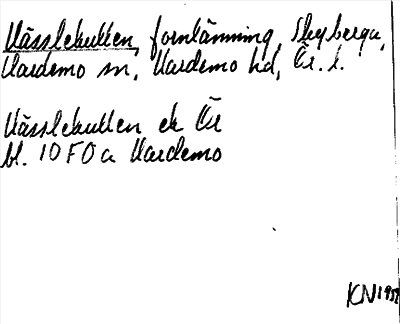 Vässlekullen, fornlämning, Skyberga,
Hardemo sn, Hardemo hd, Ör. l.
Vässlekullen ek Ör
bl. 10 F 0 a Hardemo
KN